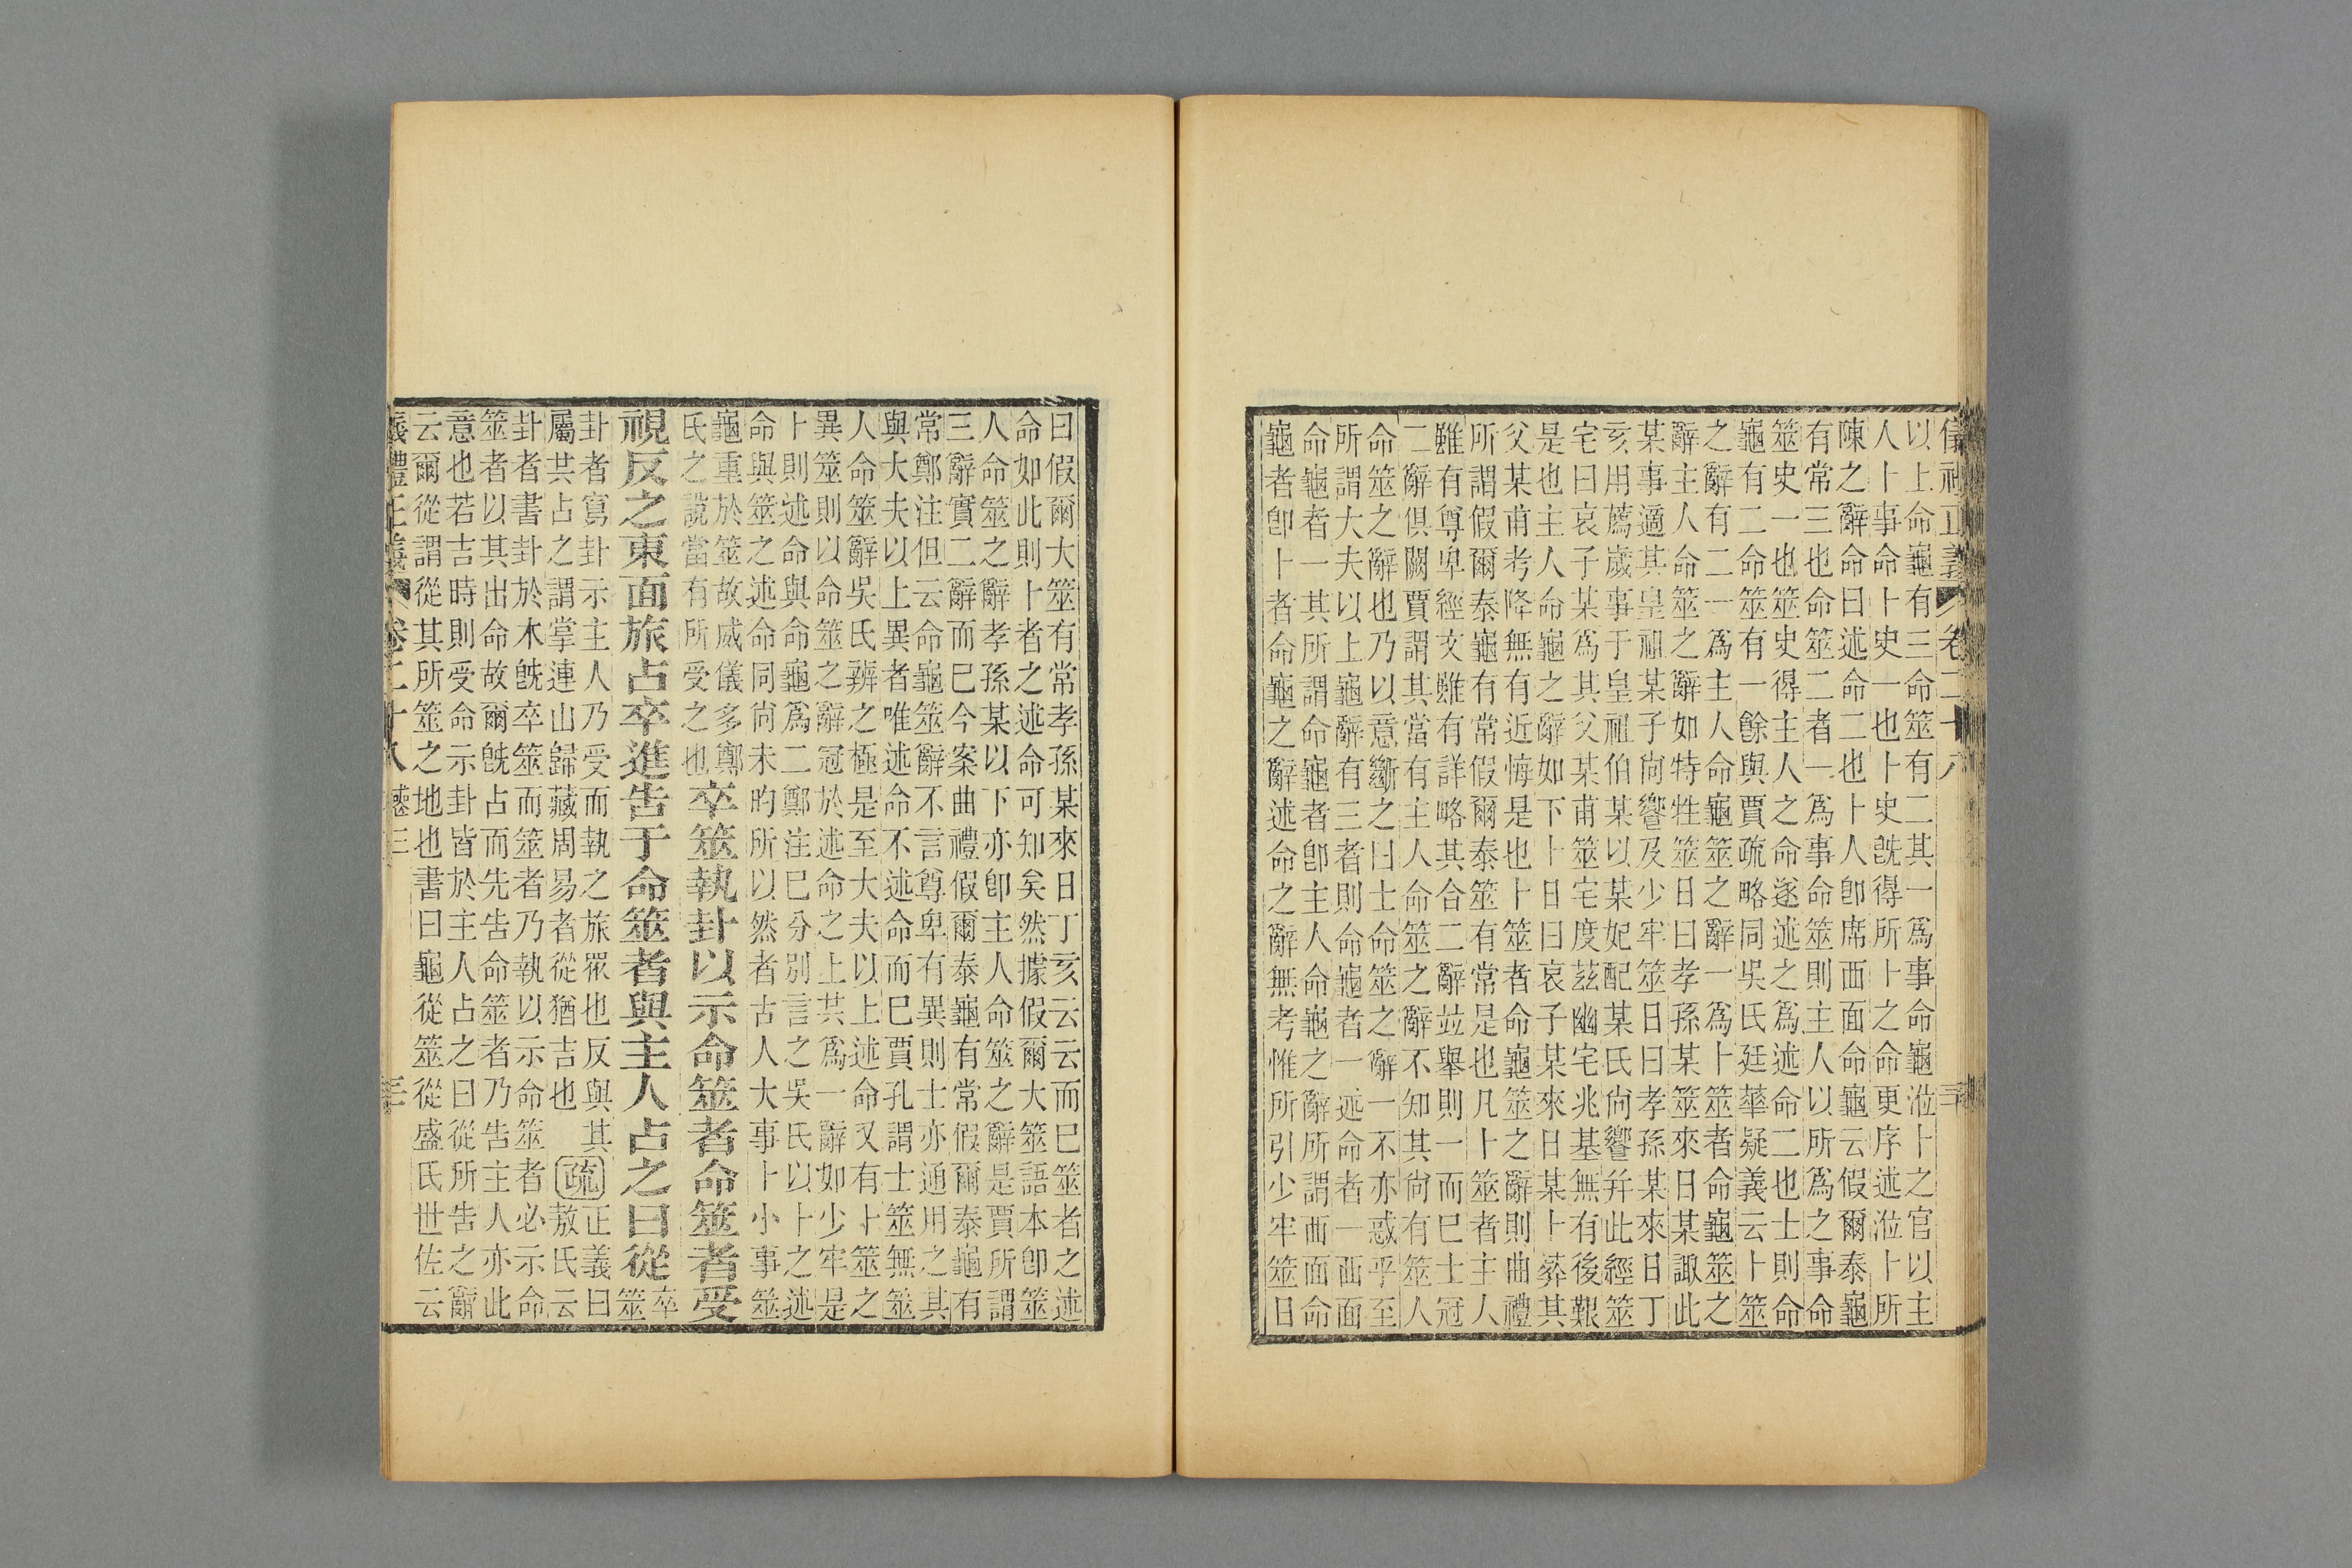 儀禮正義 卷二十八
以上命龜有三命筮有二其一爲事命龜涖卜之官以主
人十事命卜史一也卜史旣得所卜之命更序述涖卜所
陳之辭命曰述命二也卜人卽席西面命龜云假爾泰龜
有常三也命筮二者一爲事命筮則主人以所爲之事命
筮史一也筮史得主人之命遂述之爲述命二也士則命
龜有二命筮有一餘與賈疏略同吳氏廷華疑義云卜筮
之辭有二一爲主人命龜筮之辭一爲卜筮者命龜筮之
辭主人命筮之辭如特牲筮日曰孝孫某筮來日某諏此
某事適其皇祖某子尙饗及少牢筮日曰孝孫某來日丁
亥用薦歲事于皇祖伯某以某妃配某氏尙饗并此經筮
宅曰哀子某爲其父某甫筮宅度茲幽宅兆基無有後艱
是也主人命龜之辭如下卜日曰哀子某來日某卜葬其
父某甫考降無有近悔是也卜筮者命龜筮之辭則曲禮
所謂假爾泰龜有常假爾泰筮有常是也凡卜筮者主人
雖有尊卑經文雖有詳略其合二辭並舉則一而已士冠
二辭俱闕賈謂其當有主人命筮之辭不知其尙有筮人
命筮之辭也乃以意斷之曰士命筮之辭一不亦惑乎至
所謂大夫以上龜辭有三者則命龜者一述命者一西面
命龜者一其所謂命龜者卽主人命龜之辭所謂西面命
龜者卽卜者命龜之辭述命之辭無考惟所引少牢筮日
曰假爾大筮有常孝孫某來日丁亥云云而巳筮者之述
命如此則卜者之述命可知矣然據假爾大筮語本卽筮
人命筮之辭孝孫某以下亦卽主人命筮之辭是賈所謂
三辭實二辭而巳今案曲禮假爾泰龜有常假爾泰龜有
常鄭注但云命龜筮辭不言尊卑有異則士亦通用之其
與大夫以上異者唯述命不述命而巳賈孔謂士筮無筮
人命筮辭吳氏辨之極是至大夫以上述命又有卜筮之
異筮則以命筮之辭冠於述命之上共爲一辭如少牢是
卜則述命與命龜爲二鄭注巳分別言之吳氏以卜之述
命與筮之述命同尙未昀所以然者古人大事卜小事筮
龜重於筮故威儀多鄭
氏之說當有所受之也
卒筮執卦以示命筮者命筮者受
視反之東面旅占卒進告于命筮者與主人占之曰從
卒
筮
卦者寫卦示主人乃受而執之旅衆也反與其
屬共占之謂掌連山歸藏周易者從猶吉也
疏
正義曰
敖氏云
卦者書卦於木旣卒筮而筮者乃執以示命筮者必示命
筮者以其出命故爾旣占而先告命筮者乃告主人亦此
意也若吉時則受命示卦皆於主人占之曰從所告之辭
云爾從謂從其所筮之地也書曰龜從筮從盛氏世佐云
儀禮正義 卷二十八